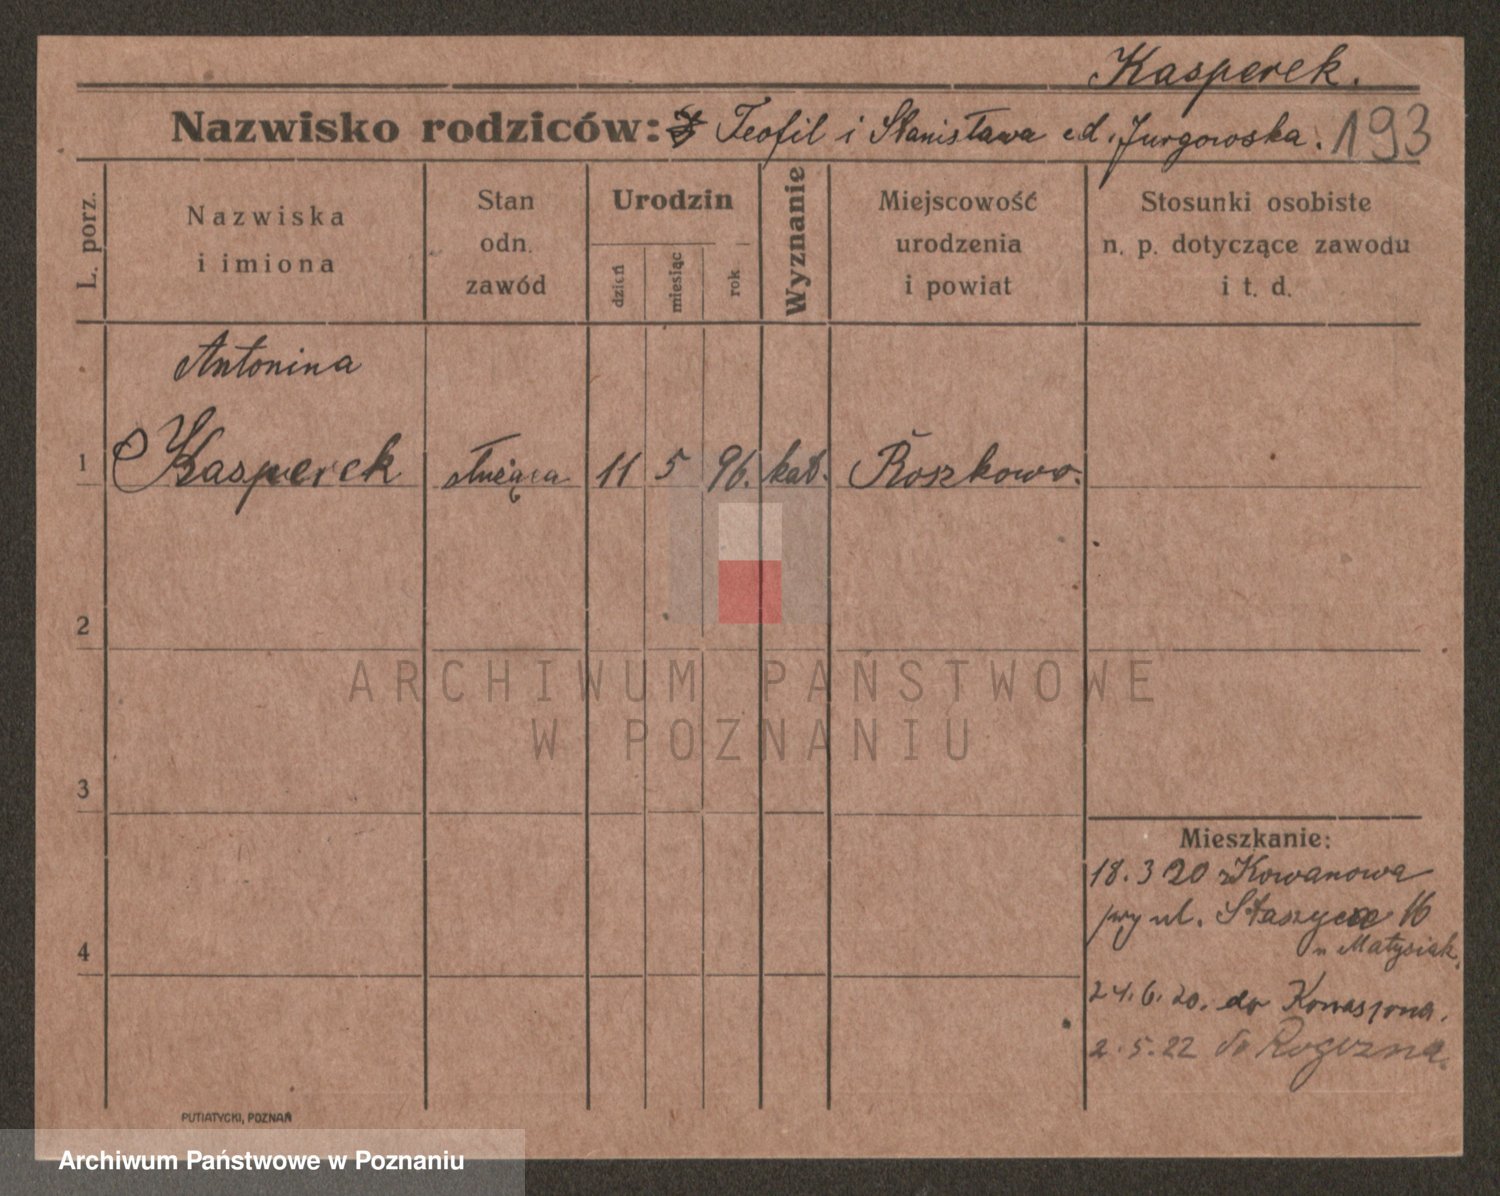 Kasperek.
Nazwisko rodziców: Teofil i Stanisława Jurgowska. 193
L. porz.
Nazwiska i imiona
Stan odn. zawód
Urodzin
dzień
miesiąc
rok
Wyznanie
Miejscowość urodzenia i powiat
Stosunki osobiste n. p. dotyczące zawodu i t. d.
Antonina
1 Kasperek służąca 11 5 96. kat. Roszkowo.
2
3
4
Mieszkanie:
18. 3 20 z Kowanowa
przy ul. Staszyca 16
u Matysiak.
24. 6. 20. do
2. 5. 22 do
PUTIATYCKI, POZNAŃ
ARCHIWUM PAŃSTWOWE
W POZNANIU
Archiwum Państwowe w Poznaniu